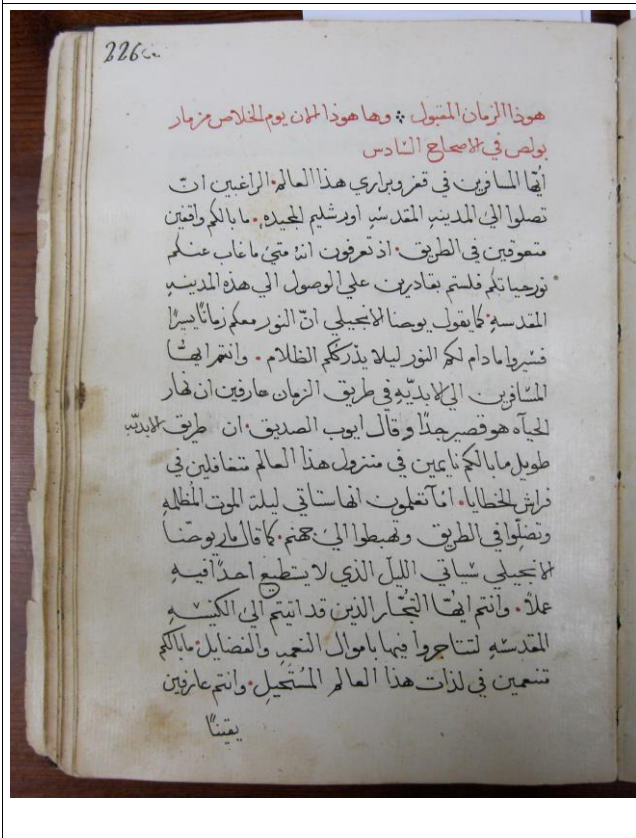 226
هوذا الزمان المقبول ܀ وها هوذا الان يوم الخلاص مزمار
بولص في الاصحاح السادس
ايّها المسافرين في قفر وبراري هذا العالم. الراغبين انّ
تصلوا الي المدينه المقدسه اورشليم المجيده. ما بالكم واقفين
متعوقين في الطريق. اذ تعرفون انهُ متي ما غاب عنكم
نور حياتكم فلستم بقادرين علي الوصول الي هذه المدينه
المقدسه. كما يقول يوحنا الانجيلي انّ النور معكم زمانًا يسيرًا
فسيروا ما دام لكم النور ليلا يدرككم الظلام. وانتم ايها
المسافرين الي الابديّه في طريق الزمان عارفين ان نهار
الحيآه هو قصير جدًا وقال ايوب الصديق. ان طريق الابديّه
طويل ما بالكم نايمين في منزول هذا العالم متغافلين في
فراش الخطايا. امآ تعلمون انها ستاتي ليلة الموت المُظلمه
وتضلّوا في الطريق وتهبطوا الي جهنم. كما قال ماري يوحنّا
الانجيلي سياتي الليل الذي لا يستطيع احدًا فيه
عملاً. وانتم ايهّا التجّار الذين قد اتيتم الي الكنيسه
المقدسه لتتاجروا فيها باموال النعمه والفضايل. ما بالكم
تنعمين في لذات هذا العالم المُستَحيل. وانتم عارفين
يقينًا